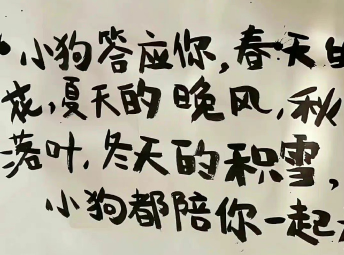 小狗答应你,春天的
花,夏天的晚风,秋
落叶,冬天的积雪,
小狗都陪你一起